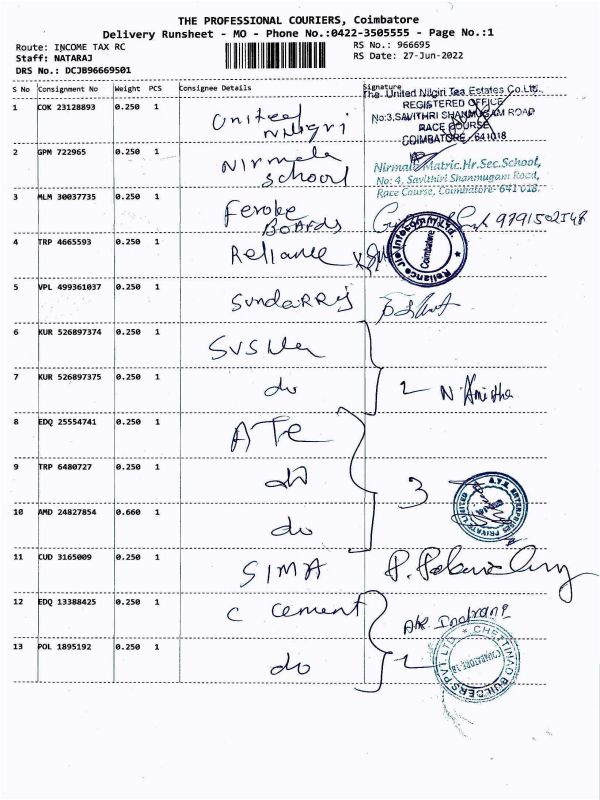 THE PROFESSIONAL COURIERS, Coimbatore
Delivery Runsheet - MO - Phone No.:0422-3505555 - Page No.:1
Route: INCOME TAX RC RS No.: 966695
Staff: NATARAJ RS Date: 27-Jun-2022
DRS No.: DCJB96669501
S No Consignment No Weight PCS Consignee Details Signature
The United Nilgiri Tea Estates Co.Ltd.,
REGISTERED OFFICE
No:3,SAVITHRI SHANMUGAM ROAD
RACE COURSE
COIMBATORE - 641018
1 COK 23128893 0.250 1 United Nilgiri
2 GPM 722965 0.250 1 Nirmala School
Nirmala Matric.Hr.Sec.School,
No: 4, Savithiri Shanmugam Road,
Race Course, Coimbatore- 641 018.
3 MLM 30037735 0.250 1 Feroke Boards 9791502548
4 TRP 4665593 0.250 1 Reliance
Reliance Jio Infocomm Ltd.
Coimbatore
5 VPL 499361037 0.250 1 Sundarraj
6 KUR 526897374 0.250 1
7 KUR 526897375 0.250 1 do 2
8 EDQ 25554741 0.250 1 ATE
9 TRP 6480727 0.250 1 do 3
10 AMD 24827854 0.660 1 do
A.T.E. ENTERPRISES PRIVATE LIMITED
11 CUD 3165009 0.250 1 SIMA
12 EDQ 13388425 0.250 1 C Cement
13 POL 1895192 0.250 1 do 2
CHETTINAD BUILDERS PVT. LTD.
COIMBATORE-18